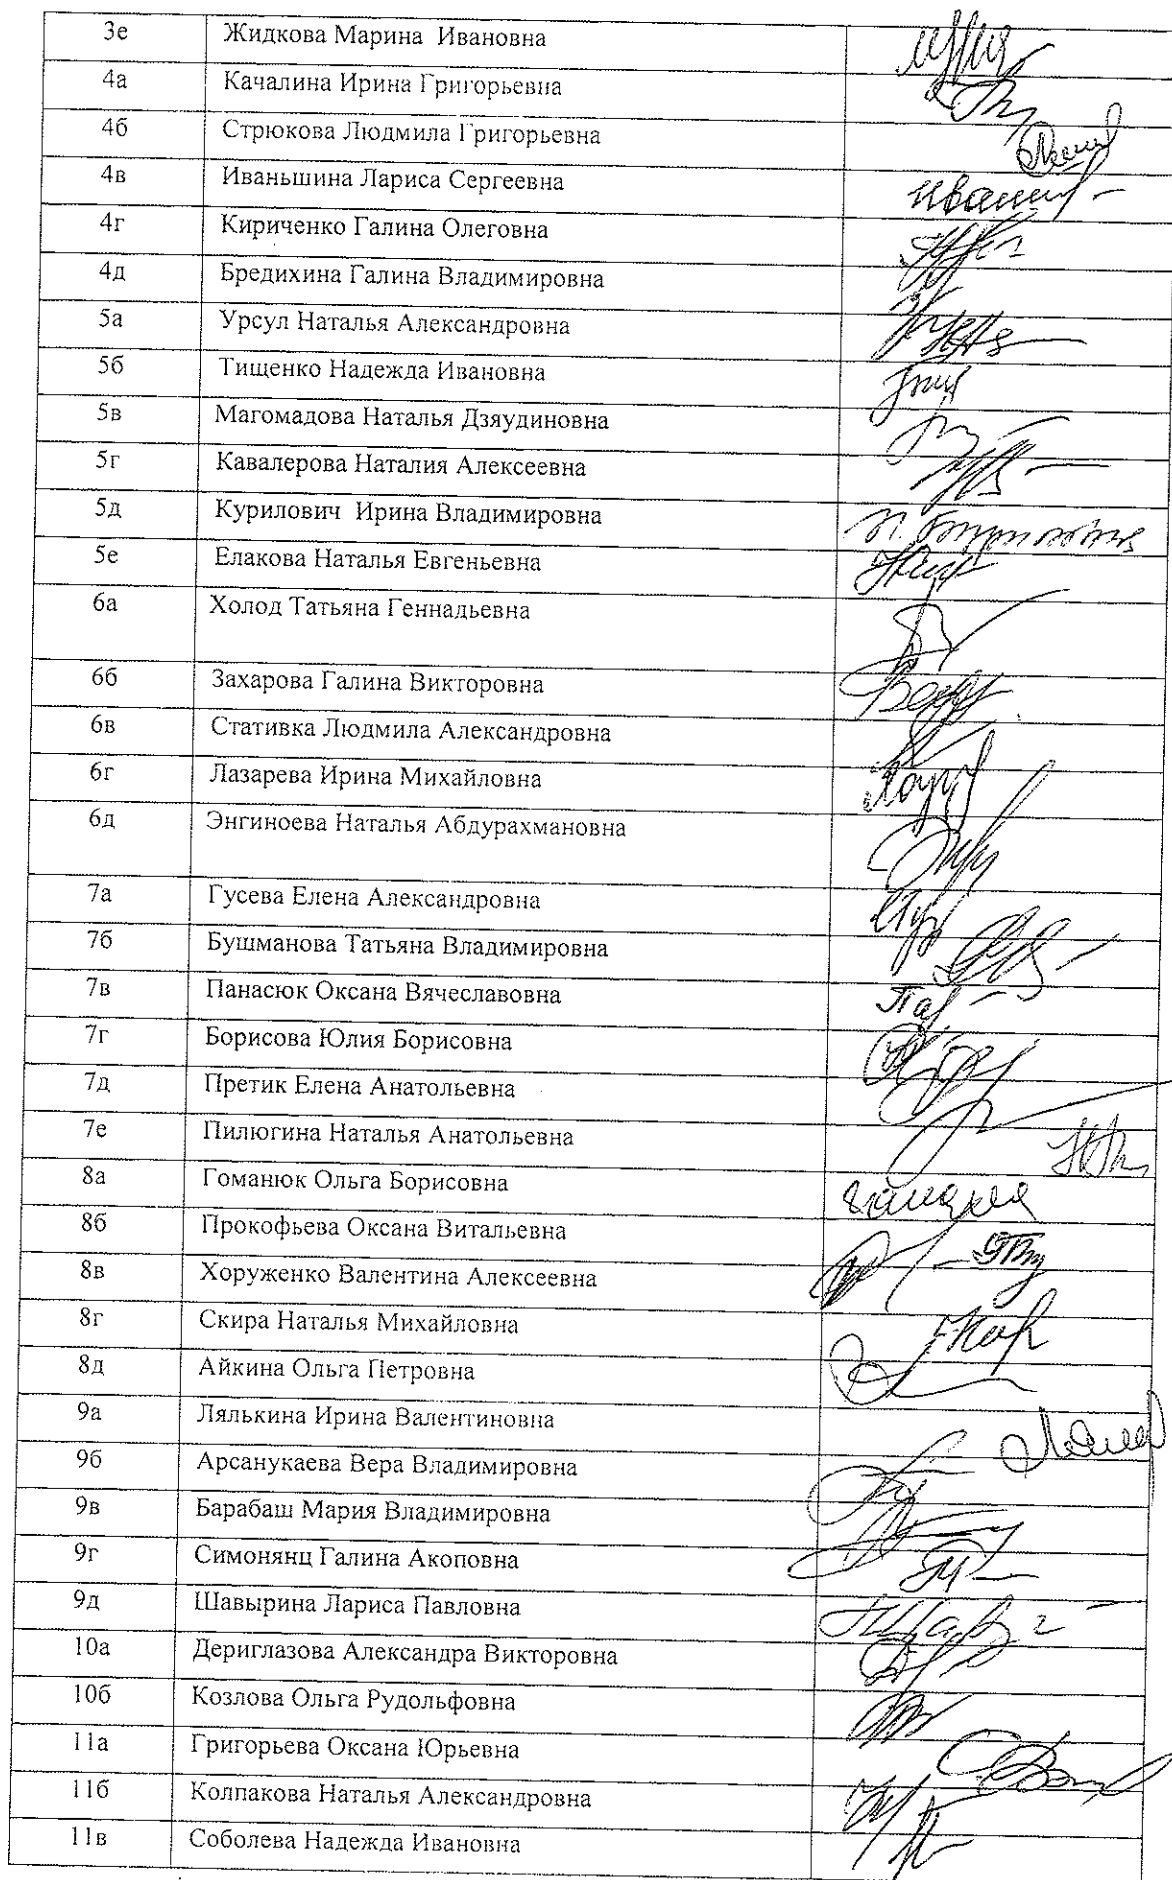 3е Жидкова Марина Ивановна
4а Качалина Ирина Григорьевна
4б Стрюкова Людмила Григорьевна
4в Иваньшина Лариса Сергеевна
4г Кириченко Галина Олеговна
4д Бредихина Галина Владимировна
5а Урсул Наталья Александровна
5б Тищенко Надежда Ивановна
5в Магомадова Наталья Дзяудиновна
5г Кавалерова Наталия Алексеевна
5д Курилович Ирина Владимировна
5е Елакова Наталья Евгеньевна
6а Холод Татьяна Геннадьевна
6б Захарова Галина Викторовна
6в Стативка Людмила Александровна
6г Лазарева Ирина Михайловна
6д Энгиноева Наталья Абдурахмановна
7а Гусева Елена Александровна
7б Бушманова Татьяна Владимировна
7в Панасюк Оксана Вячеславовна
7г Борисова Юлия Борисовна
7д Претик Елена Анатольевна
7е Пилюгина Наталья Анатольевна
8а Гоманюк Ольга Борисовна
8б Прокофьева Оксана Витальевна
8в Хоруженко Валентина Алексеевна
8г Скира Наталья Михайловна
8д Айкина Ольга Петровна
9а Лялькина Ирина Валентиновна
9б Арсанукаева Вера Владимировна
9в Барабаш Мария Владимировна
9г Симонянц Галина Акоповна
9д Шавырина Лариса Павловна
10а Дериглазова Александра Викторовна
10б Козлова Ольга Рудольфовна
11а Григорьева Оксана Юрьевна
11б Колпакова Наталья Александровна
11в Соболева Надежда Ивановна